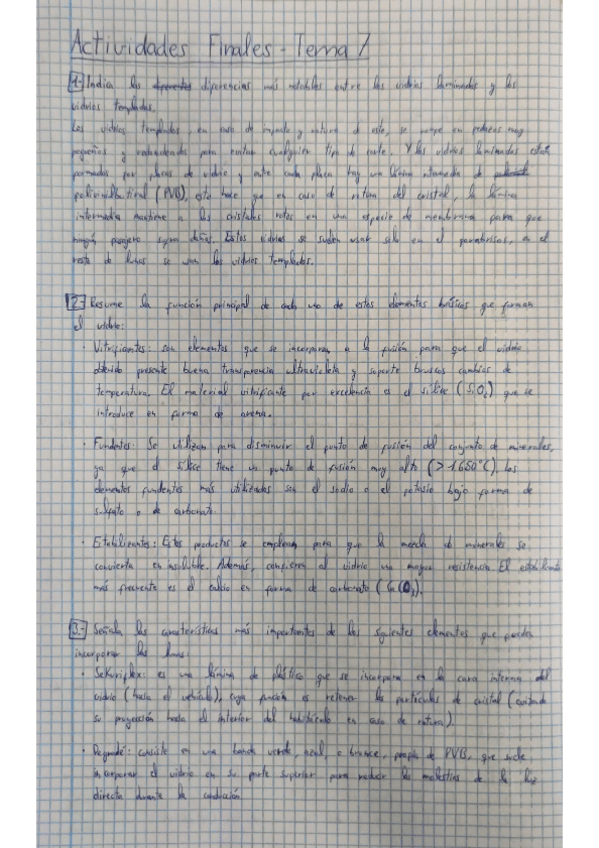 Actividades Finales - Tema 7
1- Indica las diferencias más notables entre los vidrios laminados y los
vidrios templados.
Los vidrios templados, en caso de impacto y rotura de este, se rompe en pedazos muy
pequeños y redondeados para evitar cualquier tipo de corte. Y los vidrios laminados están
formados por placas de vidrio y entre cada placa hay una lámina intermedia de
polivinilbutiral (PVB), esto hace que en caso de rotura del cristal, la lámina
intermedia mantiene a los cristales rotos en una especie de membrana para que
ningún pasajero sufra daños. Estos vidrios se suelen usar solo en el parabrisas, en el
resto de lunas se usan los vidrios templados.
2- Resume la función principal de cada uno de estos elementos básicos que forman
el vidrio:
· Vitrificantes: son elementos que se incorporan a la fusión para que el vidrio
obtenido presente buena transparencia ultravioleta y soporte bruscos cambios de
temperatura. El material vitrificante por excelencia es el sílice (SiO2) que se
introduce en forma de arena.
· Fundentes: Se utilizan para disminuir el punto de fusión del conjunto de minerales,
ya que el sílice tiene un punto de fusión muy alto (>1650°C). Los
elementos fundentes más utilizados son el sodio o el potasio bajo forma de
sulfato o de carbonato.
· Estabilizantes: Estos productos se emplean para que la mezcla de minerales se
convierta en insoluble. Además, confieren al vidrio una mayor resistencia. El estabilizante
más frecuente es el calcio en forma de carbonato (CaCO3).
3- Señala las características más importantes de los siguientes elementos que pueden
incorporar las lunas:
· Sekuriflex: es una lámina de plástico que se incorpora en la cara interna del
vidrio (hacia el vehículo), cuya función es retener las partículas de cristal (evitando
su proyección hacia el interior del habitáculo en caso de rotura).
· Degradé: consiste en una banda verde, azul, o bronce, propia de PVB, que suele
incorporar el vidrio en su parte superior para reducir las molestias de la luz
directa durante la conducción.